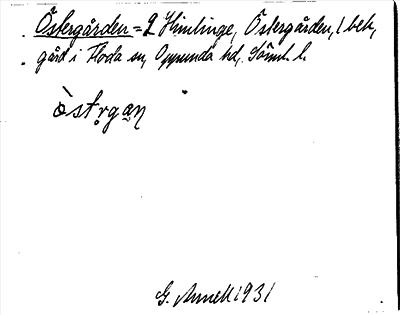 Östergården = 2 Himlinge, Östergården, 1 beb.
gård i Floda sn, Oppunda hd, Södml. l.
òstr̥gan̥
G. Annell 1931